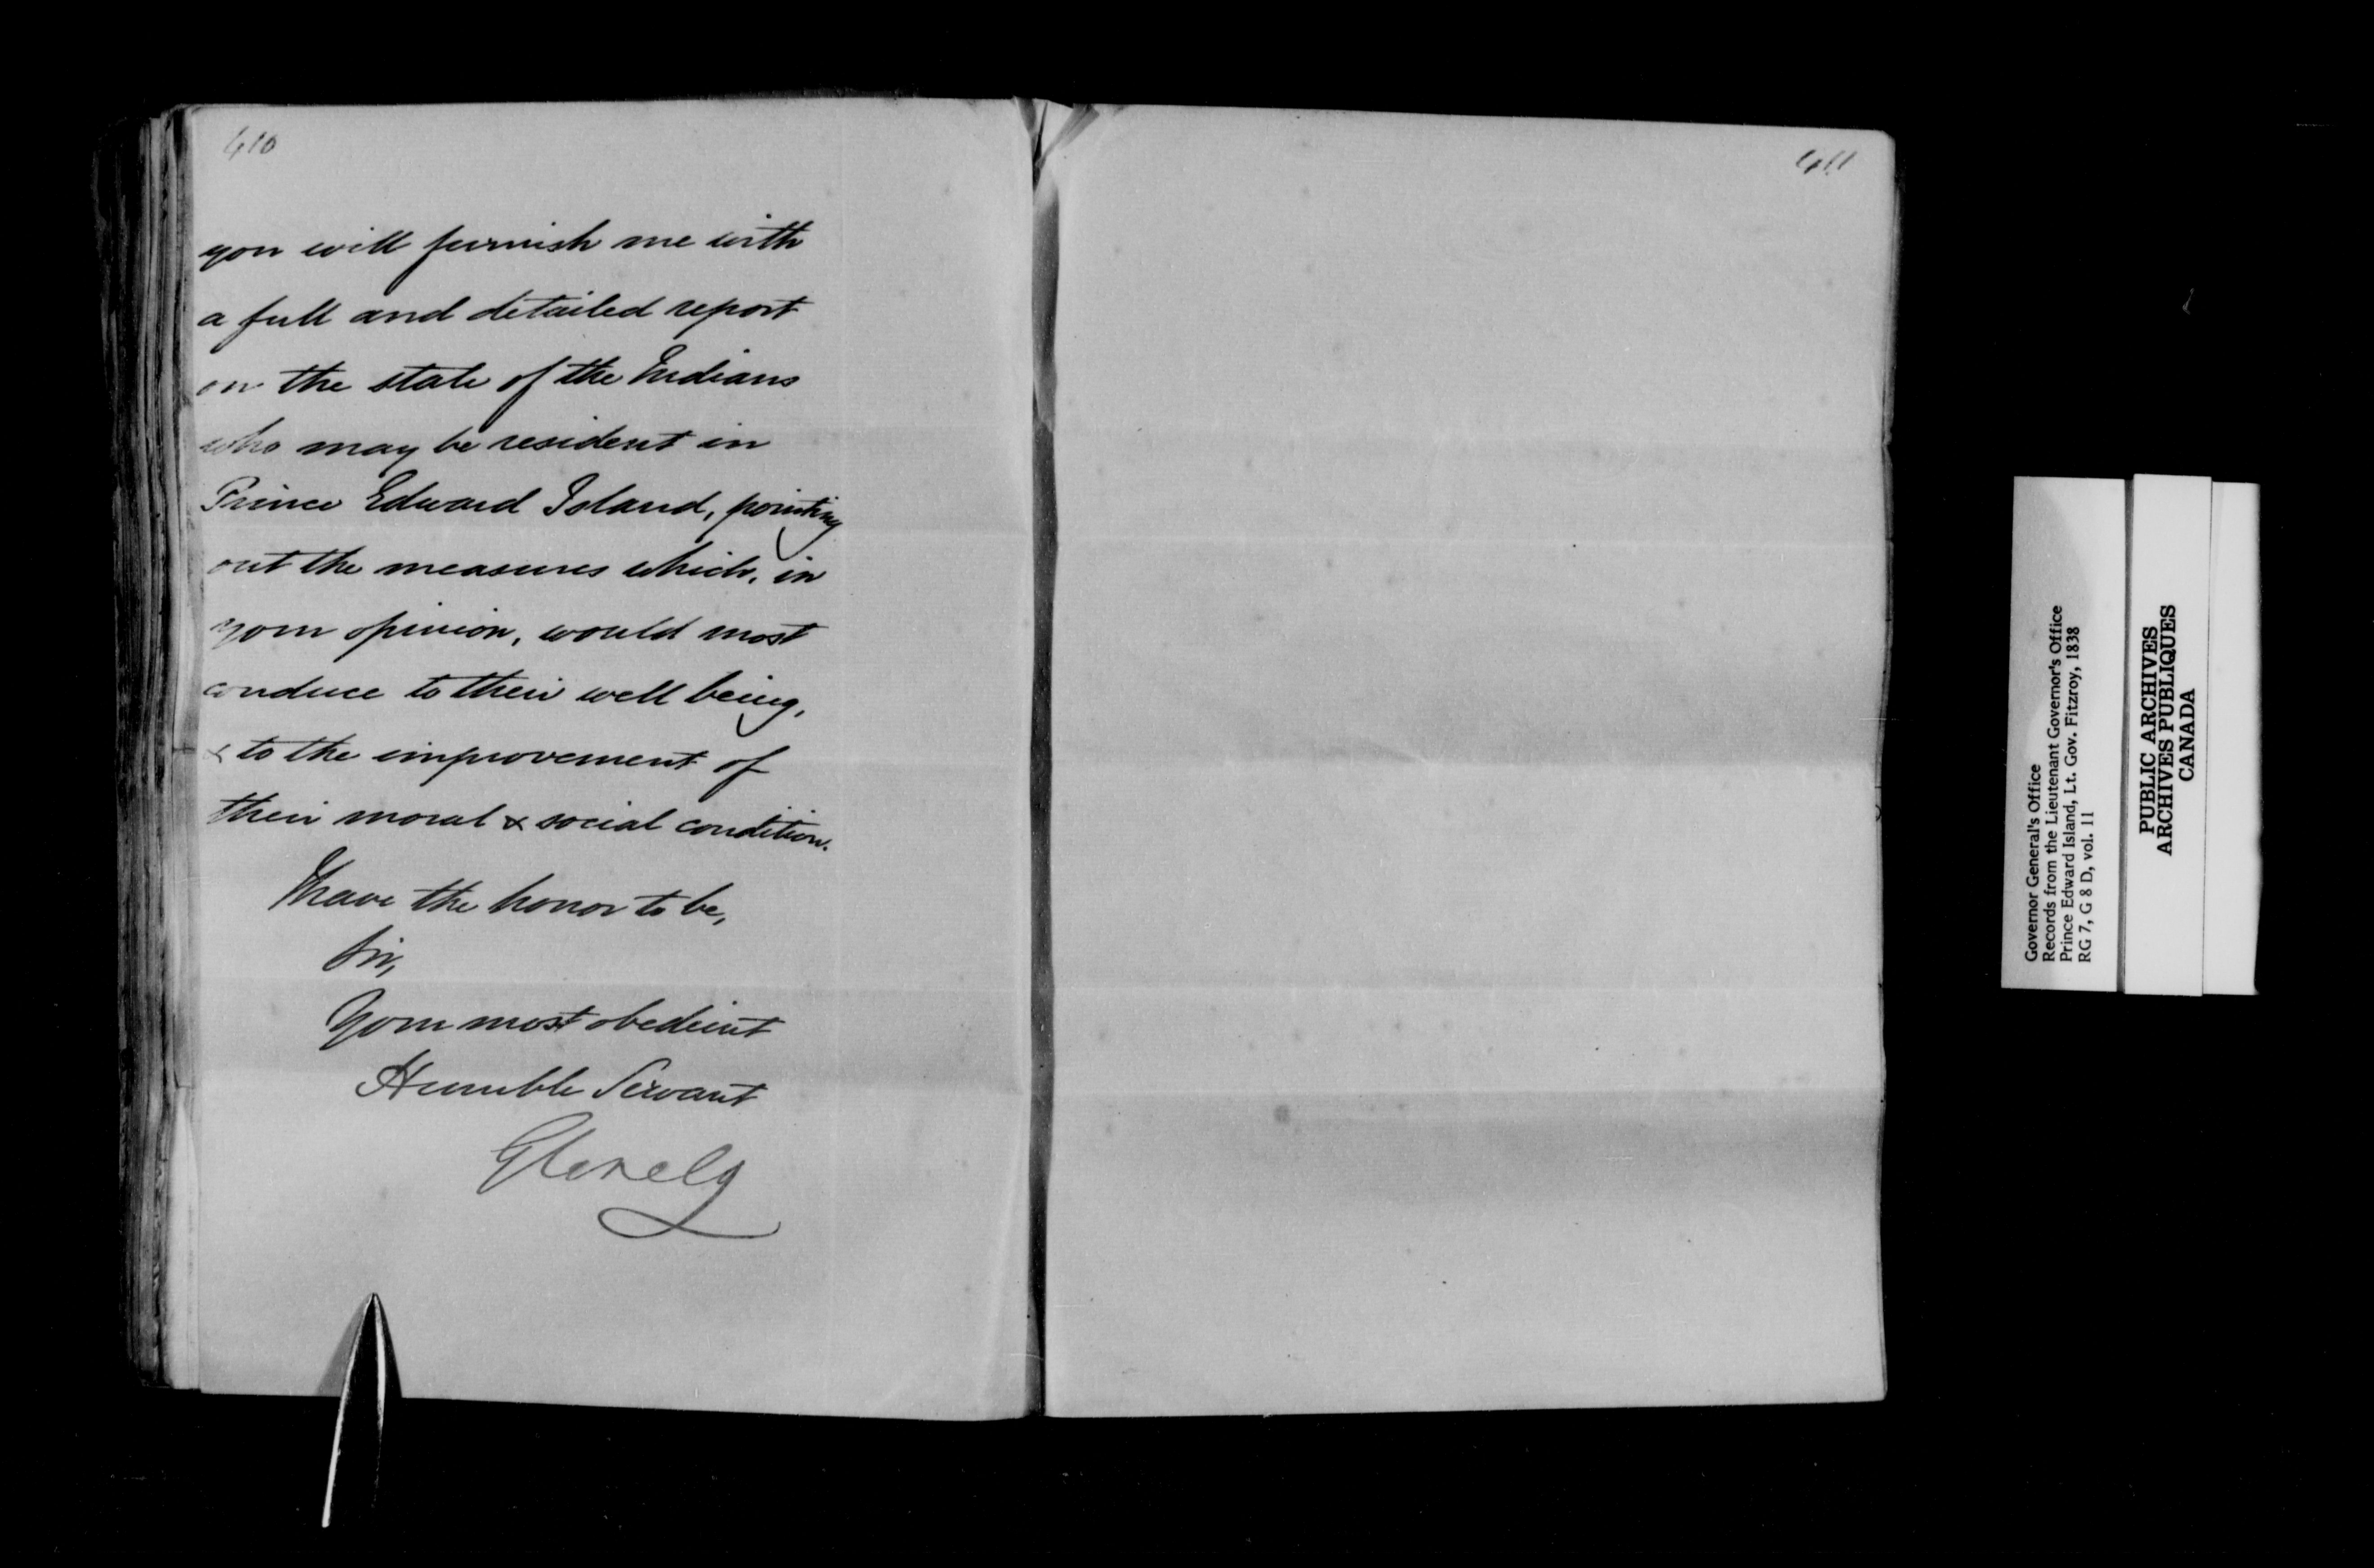 410
you will furnish me with
a full and detailed report
on the state of the Indians
who may be resident in
Prince Edward Island, pointing
out the measures which, in
your opinion, would most
conduce to their well being,
& to the improvement of
their moral & social condition.
I have the honor to be,
Sir,
Your most obedient
Humble Servant
Glenelg
411
Governor General's Office
Records from the Lieutenant Governor's Office
Prince Edward Island, Lt. Gov. Fitzroy, 1838
RG 7, G 8 D, vol. 11
PUBLIC ARCHIVES
ARCHIVES PUBLIQUES
CANADA